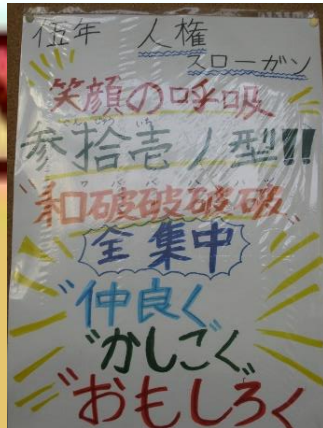 伍年 人権
スローガン
笑顔の呼吸
参拾壱ノ型!!
和破破破破
全集中
仲良く
かしこく
おもしろく